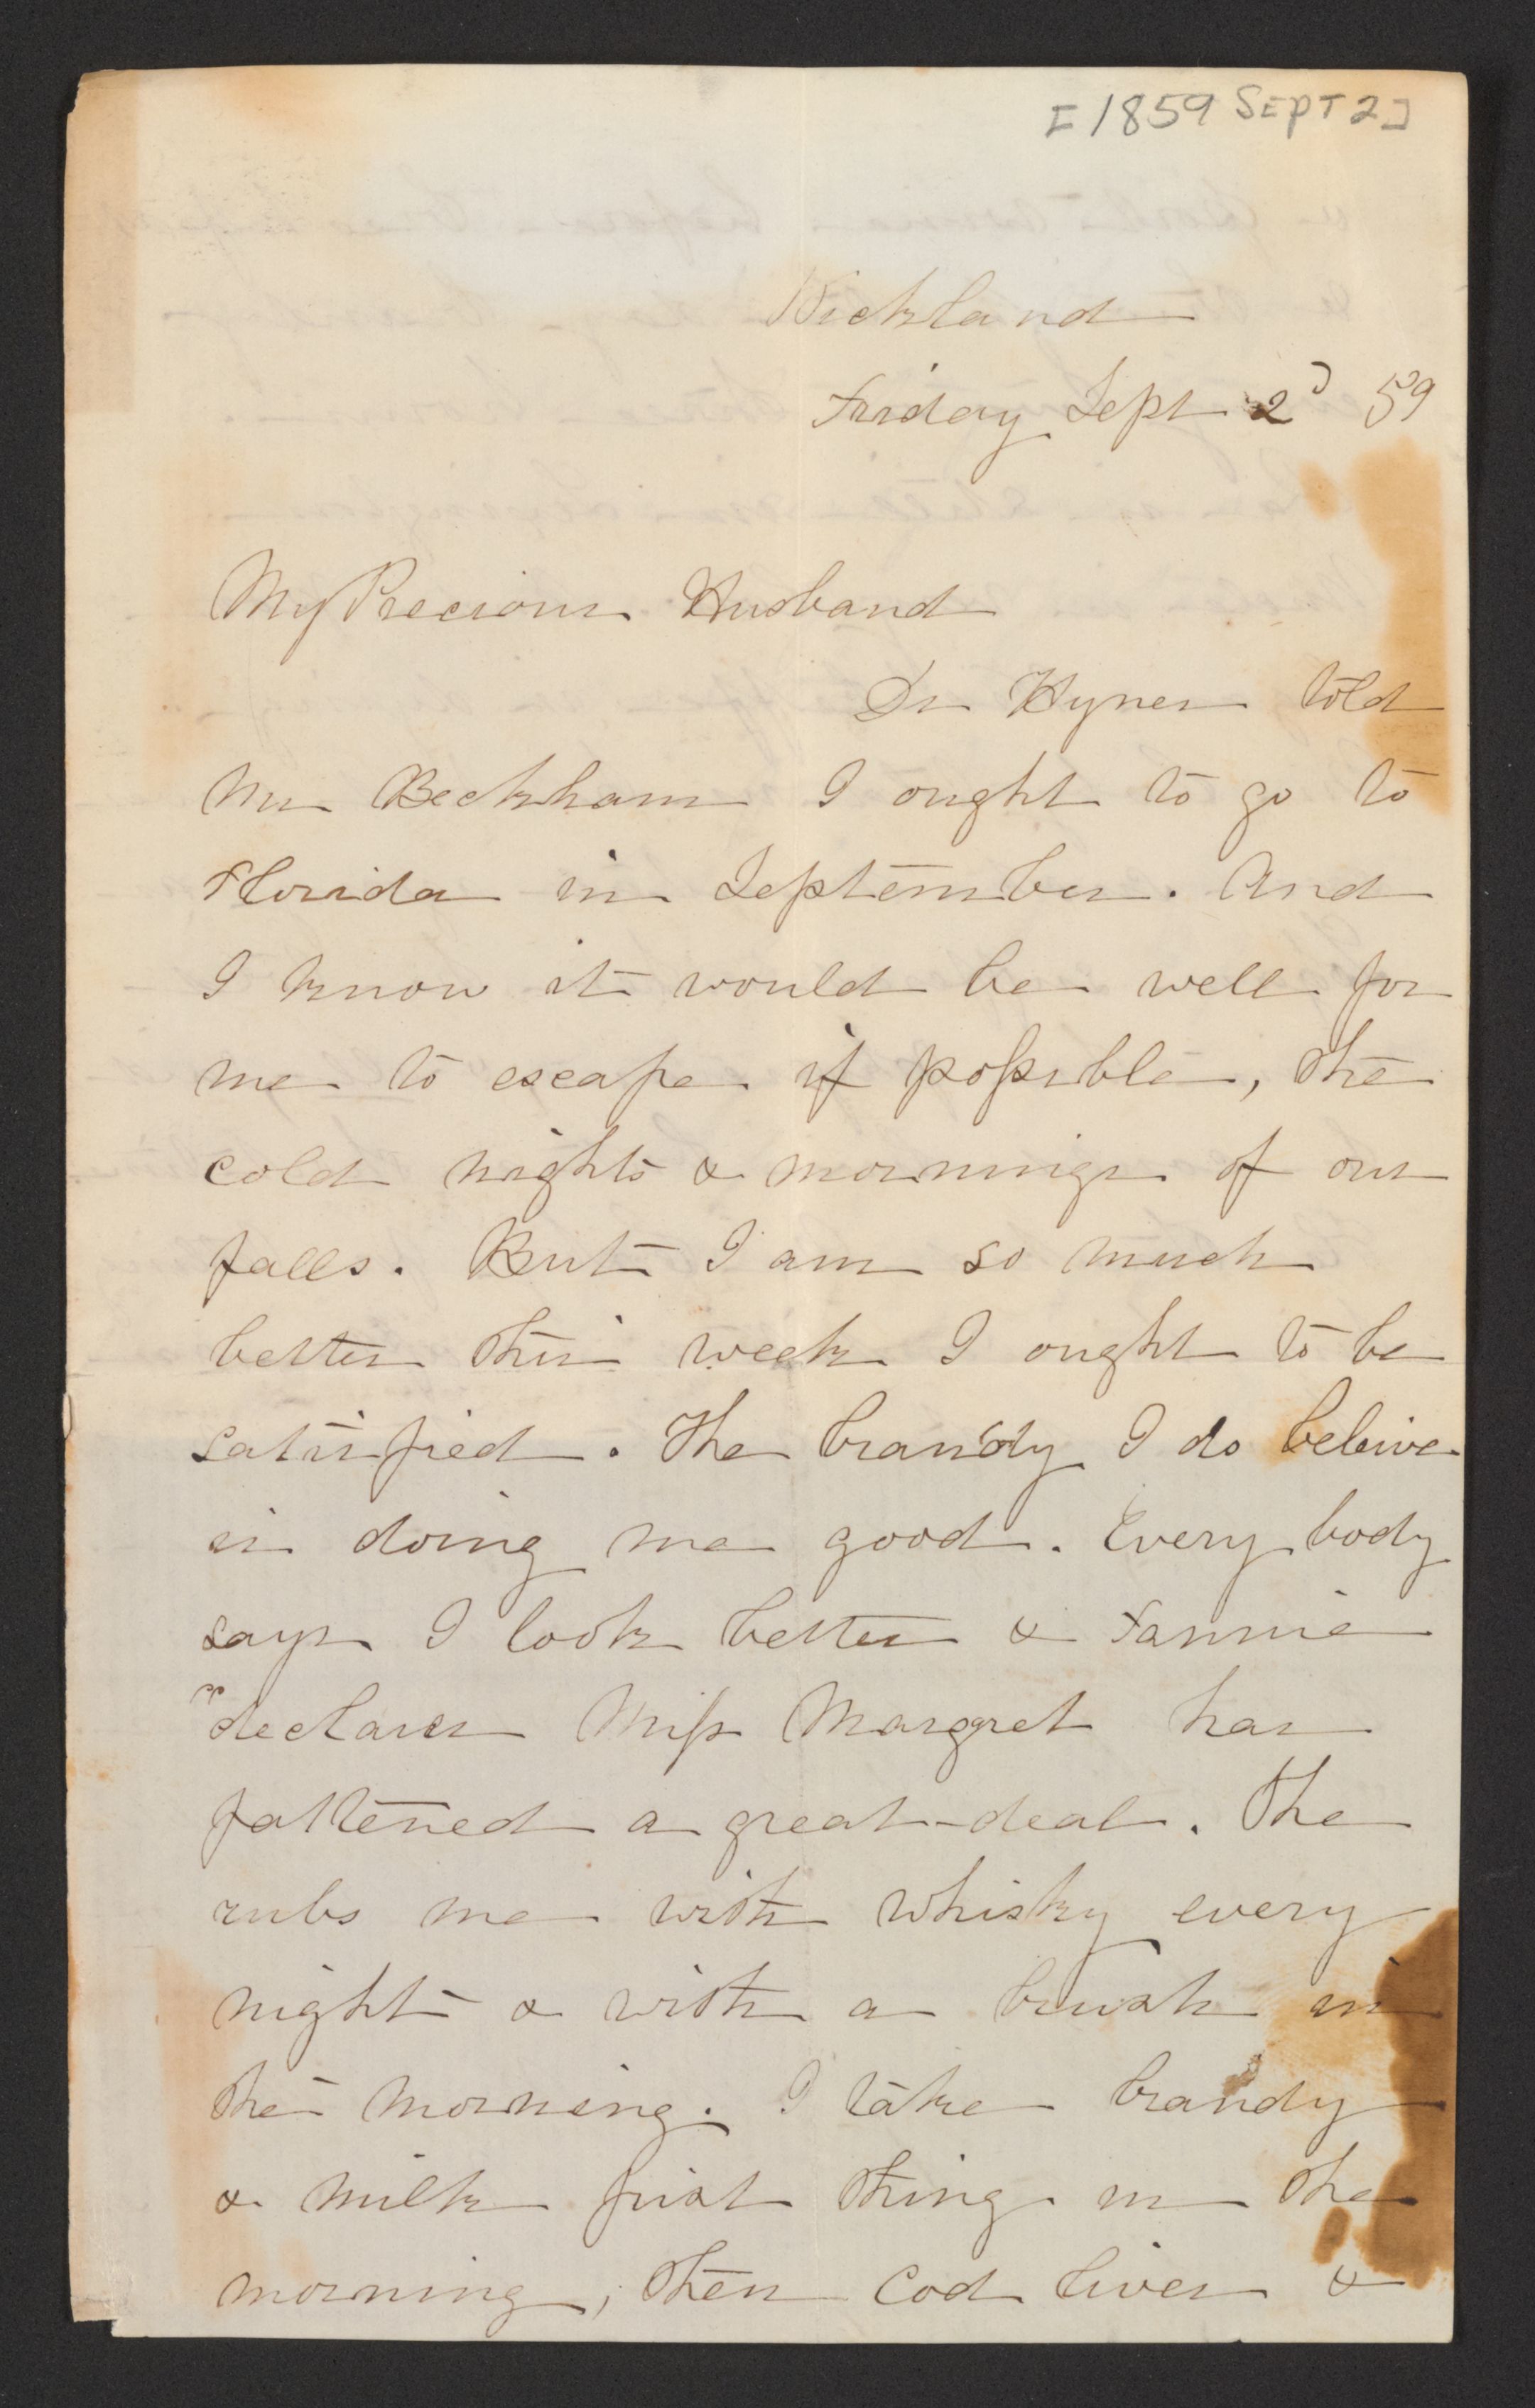 [1859 SEPT 2]
Wickland
Friday Sept 2d 59
My Precious Husband
Dr Hynes told
Mr Beckham I ought to go to
Florida in September. And
I know it would be well for
me to escape if possible, the
cold nights & mornings of our
falls. But I am so much
better this week I ought to be
satisfied. The brandy I do beleive
is doing me good. Every body
says I look better & Fannie
declares "Miss Margret has
fattened a great-deal. She
rubs me with whisky every
night & with a brush in
the morning. I take brandy
& milk first thing in the
morning, then Cod liver &